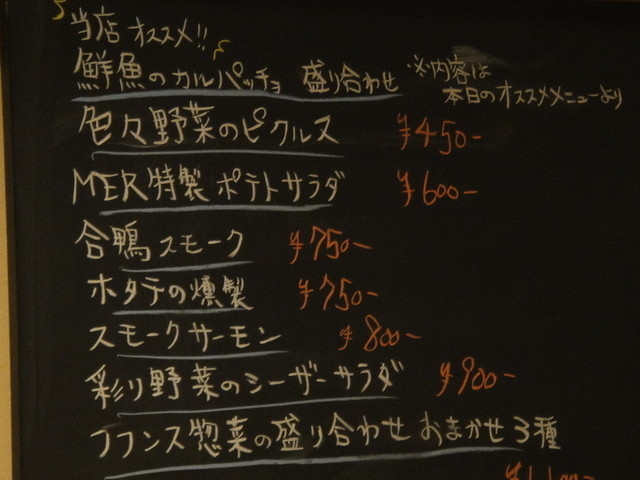 当店オススメ!!
鮮魚のカルパッチョ 盛り合わせ ※内容は
本日のオススメメニューより
色々野菜のピクルス ¥450-
MER特製ポテトサラダ ¥600-
合鴨スモーク ¥750-
ホタテの燻製 ¥750-
スモークサーモン ¥800-
彩り野菜のシーザーサラダ ¥900-
フランス惣菜の盛り合わせ おまかせ3種